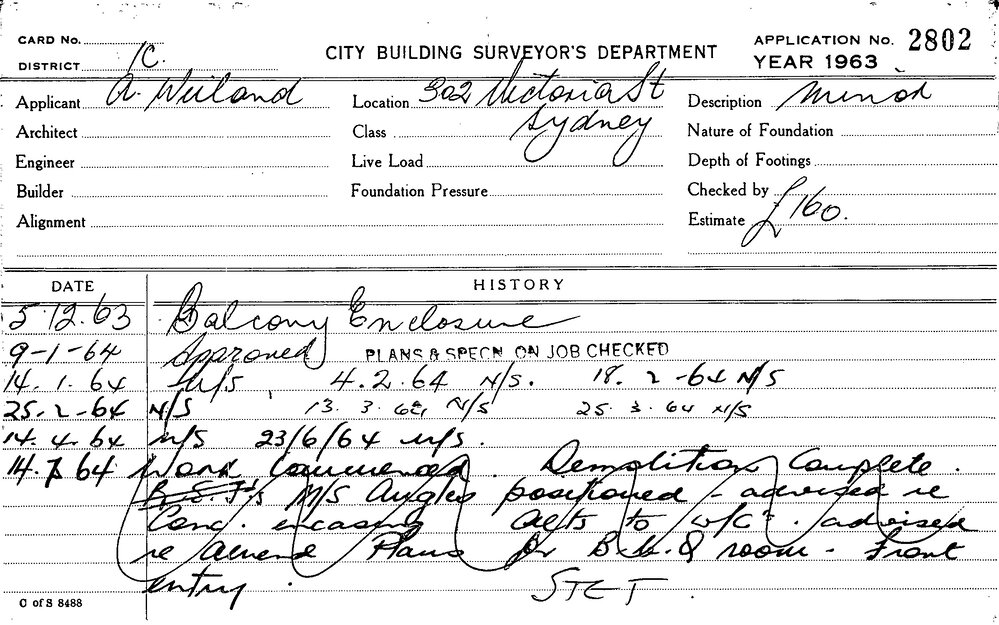 CARD No.
DISTRICT 1C.
CITY BUILDING SURVEYOR'S DEPARTMENT
APPLICATION No. 2802
YEAR 1963
Applicant A. Weiland
Location 302 Victoria St
Sydney
Description Minor
Architect
Class
Nature of Foundation
Engineer
Live Load
Depth of Footings
Builder
Foundation Pressure
Checked by
Alignment
Estimate £160.
DATE HISTORY
5.12.63 Balcony Enclosure
9-1-64 Approved PLANS & SPECN ON JOB CHECKED
14.1.64 N/S, 4.2.64 N/S. 18.2-64 N/S
25.2-64 N/S 13.3.64 N/S 25.3.64 N/S
14.4.64 N/S 23/6/64 N/S.
14.7.64 Work commenced. Demolition Complete.
M/S Angles positioned - advised re
Conc. encasing Alts to W/Cs. advised
re Amend Plans for B. & room - Front
entry.
STET.
C of S 8488